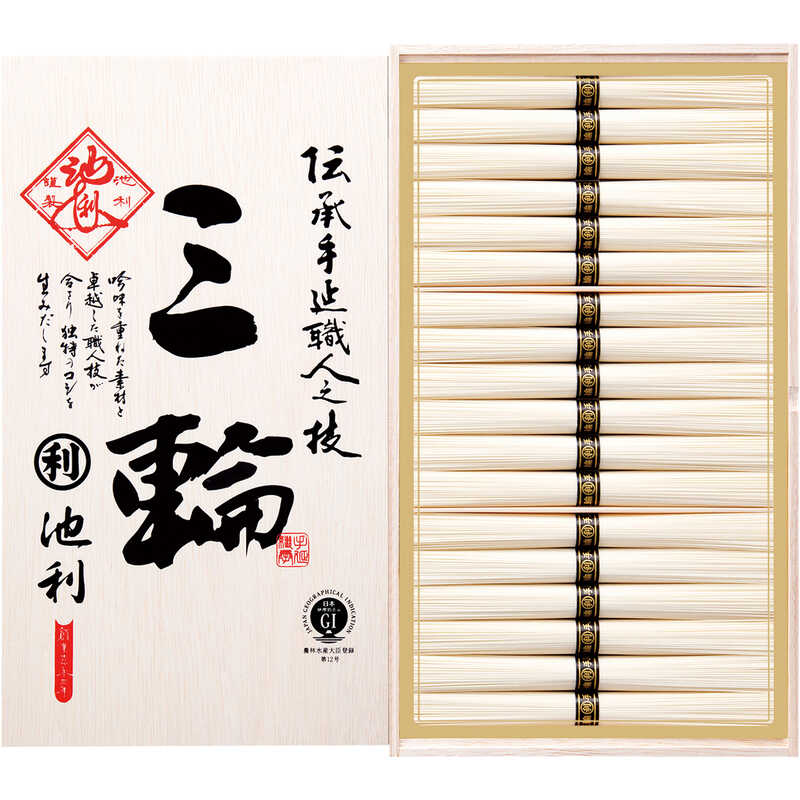 伝承手延職人之技
三輪
池利
謹製
池利
吟味を重ねた素材と
卓越した職人技が
合さり独特のコシを
生みだします
利
池利
JAPAN GEOGRAPHICAL INDICATION
日本
GI
農林水産大臣登録
第12号